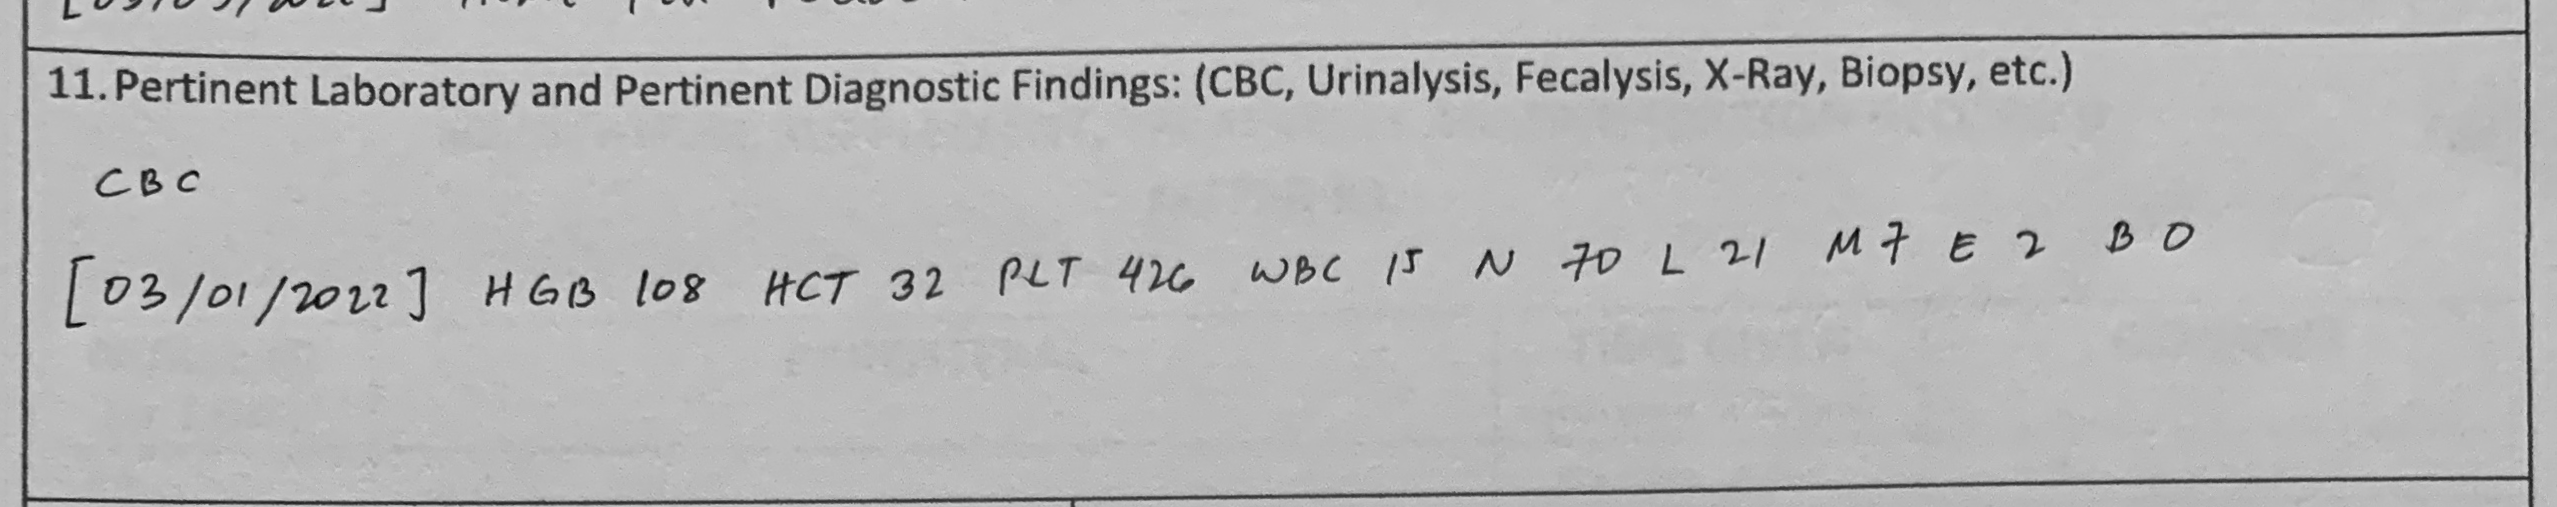 11. Pertinent Laboratory and Pertinent Diagnostic Findings: (CBC, Urinalysis, Fecalysis, X-Ray, Biopsy, etc.)
CBC
[03/01/2022] HGB 108 HCT 32 PLT 426 WBC 15 N 70 L 21 M 7 E 2 B 0